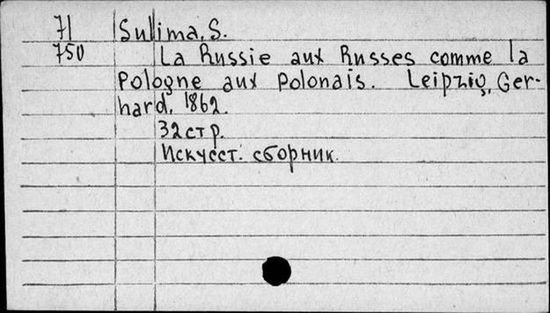 71 Sulima, S.
750 La Russie aux Russes comme la
Pologne aux Polonais. Leipzig, Ger-
hard, 1862.
32 стр.
Искусст. сборник.